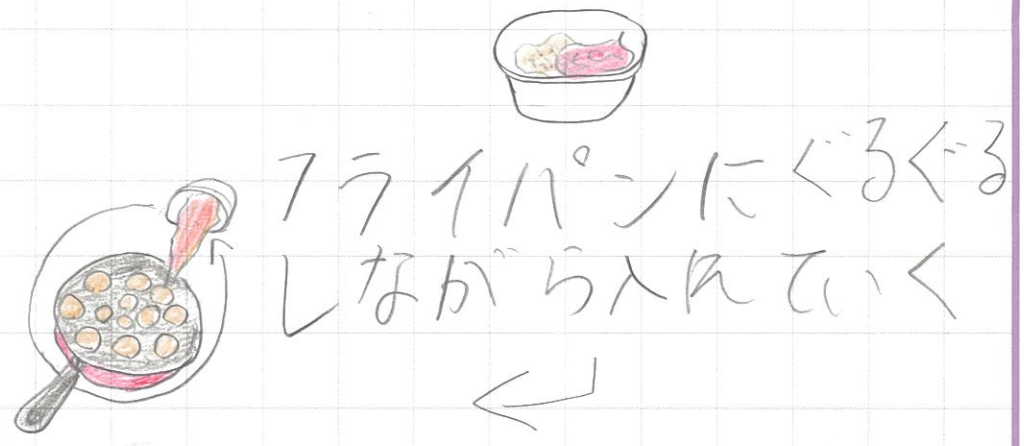 フライパンにぐるぐる
しながら入れていく